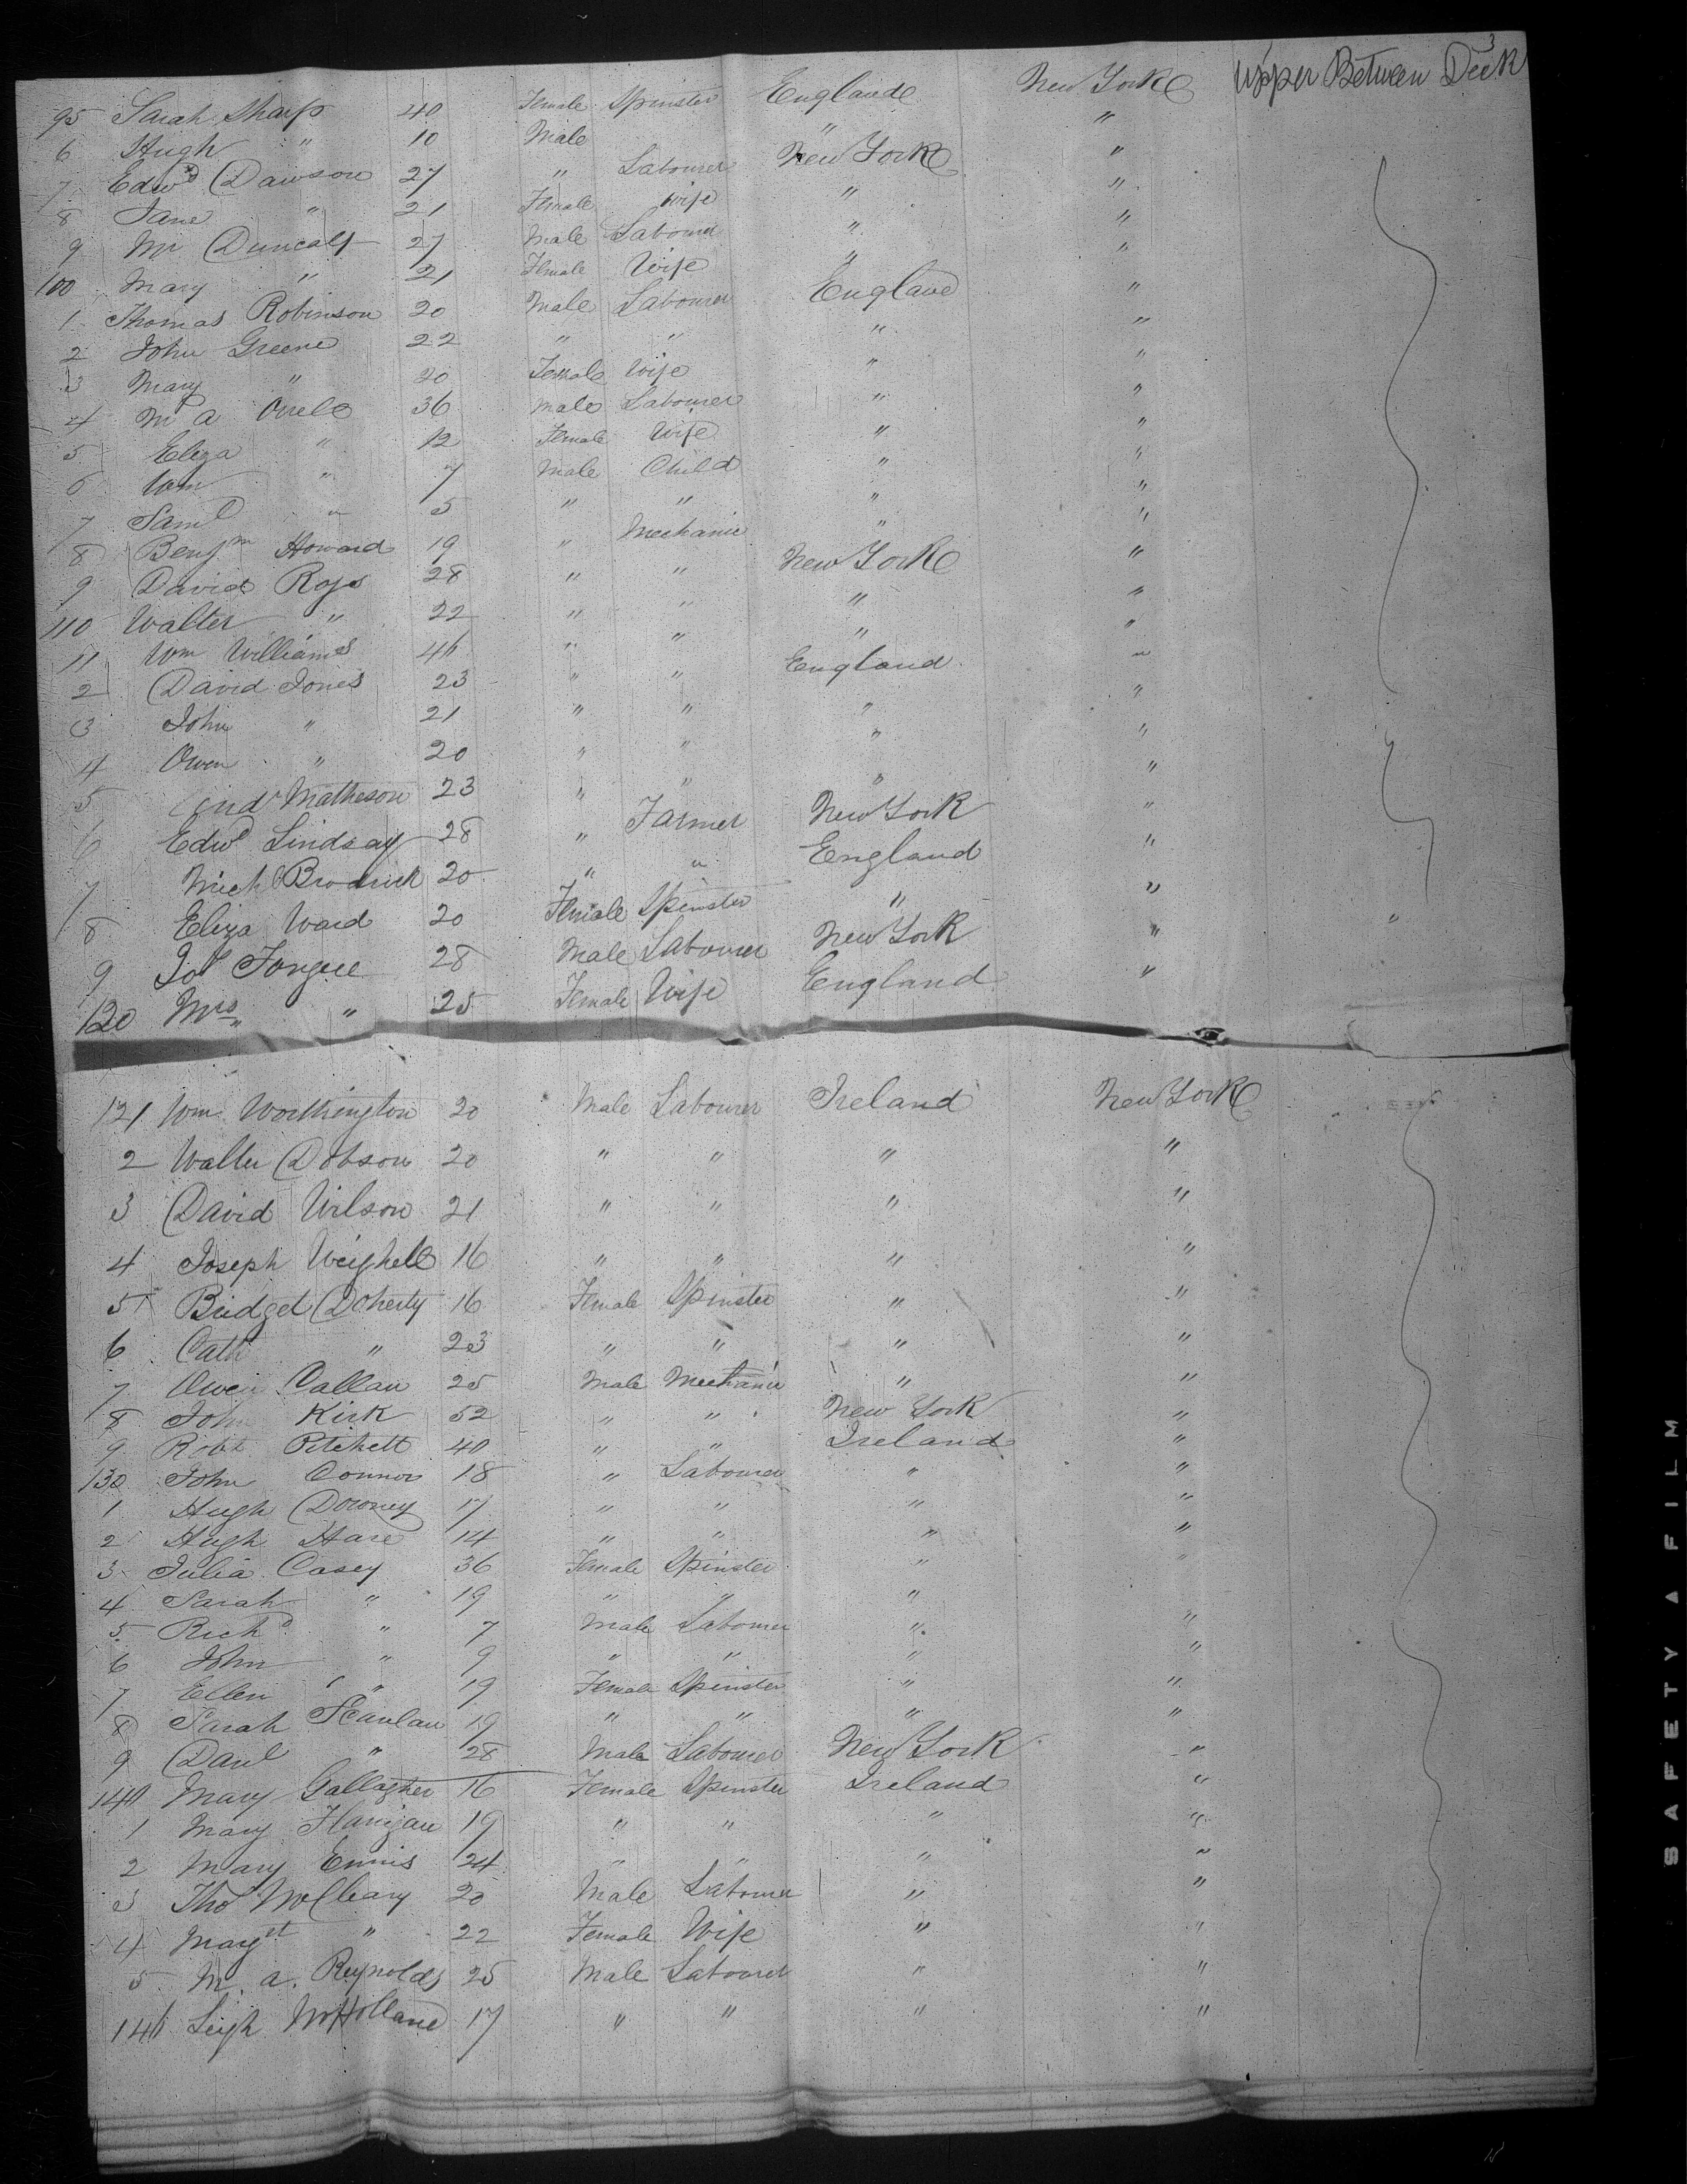 3
Upper Between Deck
95 Sarah Sharp 40 Female Spinster England New York
6 Hugh " 10 Male " "
7 Edwd Dawson 27 " Labourer New York "
8 Jane " 21 Female Wife " "
9 Mr Duncalf 27 Male Labourer " "
100 Mary " 21 Female Wife " "
1 Thomas Robinson 20 Male Labourer England "
2 John Greene 22 " " " "
3 Mary " 20 Female Wife " "
4 M A Orrell 36 Male Labourer " "
5 Eliza " 12 Female Wife " "
6 Wm " 7 Male Child " "
7 Saml " 5 " " " "
8 Benjm Howard 19 " Mechanic " "
9 David Ross 28 " " New York "
110 Walter " 22 " " " "
11 Wm Williams 46 " " " "
2 David Jones 23 " " England "
3 John " 21 " " " "
4 Owen " 20 " " " "
5 Andw Matheson 23 " " " "
6 Edwd Lindsay 28 " Farmer New York "
7 Michl Brodrick 20 " " England "
8 Eliza Ward 20 Female Spinster " " "
9 Jos 28 Male Labourer New York "
120 Mrs " 25 Female Wife England "
121 Wm Worthington 20 Male Labourer Ireland New York
2 Walter Dobson 20 " " " "
3 David Wilson 21 " " " "
4 Joseph Weighell 16 " " " "
5 Bridget Doherty 16 Female Spinster " "
6 Cath " 23 " " " "
7 Owen Callan 25 Male Mechanic " "
8 John Kirk 52 " " New York "
9 Robt Pitchett 40 " " Ireland "
130 John Connor 18 " Labourer " "
1 Hugh Downey 17 " " " "
2 Hugh Hare 14 " " " "
3 Julia Casey 36 Female Spinster " "
4 Sarah " 19 " " "
5 Richd " 7 Male Labourer " "
6 John " 9 " " " "
7 Ellen " 19 Female Spinster " "
8 Sarah Scanlan 19 " " " "
9 Danl " 28 Male Labourer New York "
140 Mary Gallagher 16 Female Spinster Ireland "
1 Mary Flanigan 19 " " " "
2 Mary Ennis 24 " " " "
3 Thos McCleary 20 Male Labourer " "
4 Margt " 22 Female Wife " "
5 M. A. Reynolds 25 Male Labourer " "
146 Leigh McHolland 17 " " " "
SAFETY A FILM